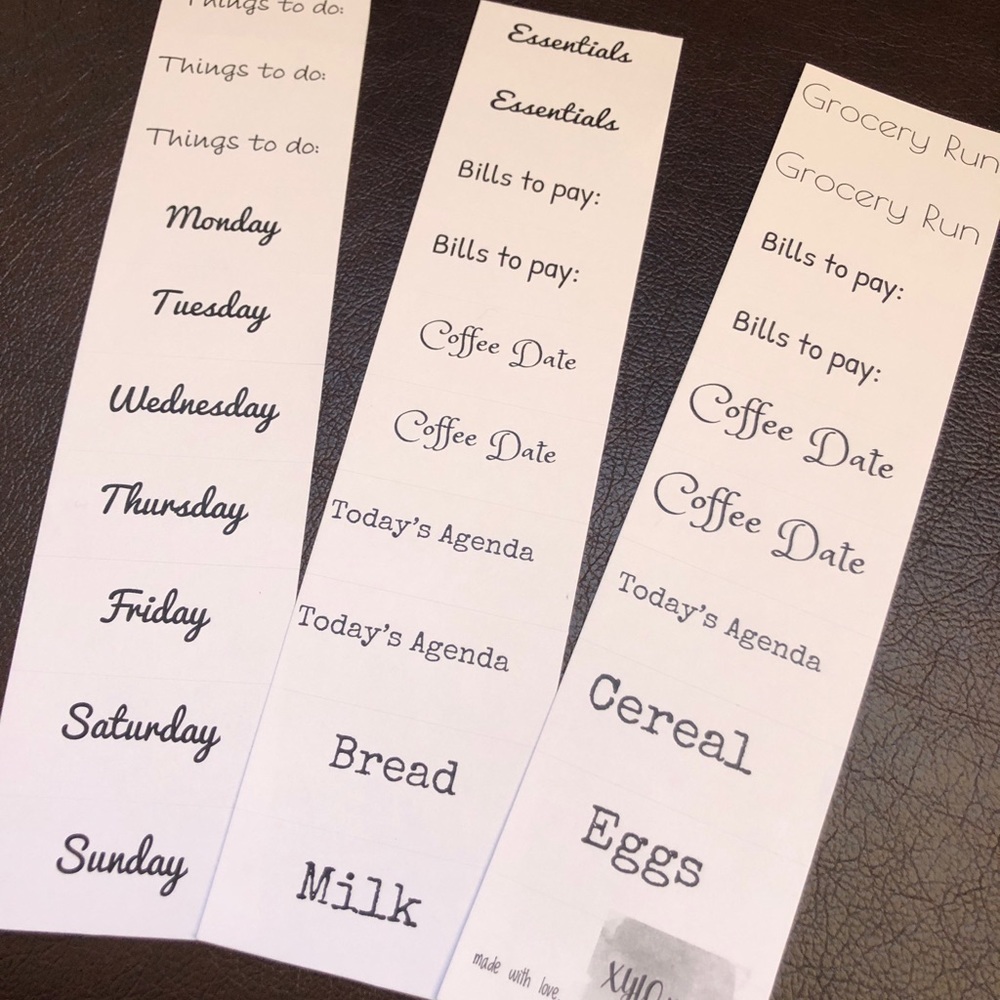 Things to do:
Things to do:
Things to do:
Monday
Tuesday
Wednesday
Thursday
Friday
Saturday
Sunday
Essentials
Essentials
Bills to pay:
Bills to pay:
Coffee Date
Coffee Date
Today's Agenda
Today's Agenda
Bread
Milk
Grocery Run
Grocery Run
Bills to pay:
Bills to pay:
Coffee Date
Coffee Date
Today's Agenda
Cereal
Eggs
made with love.